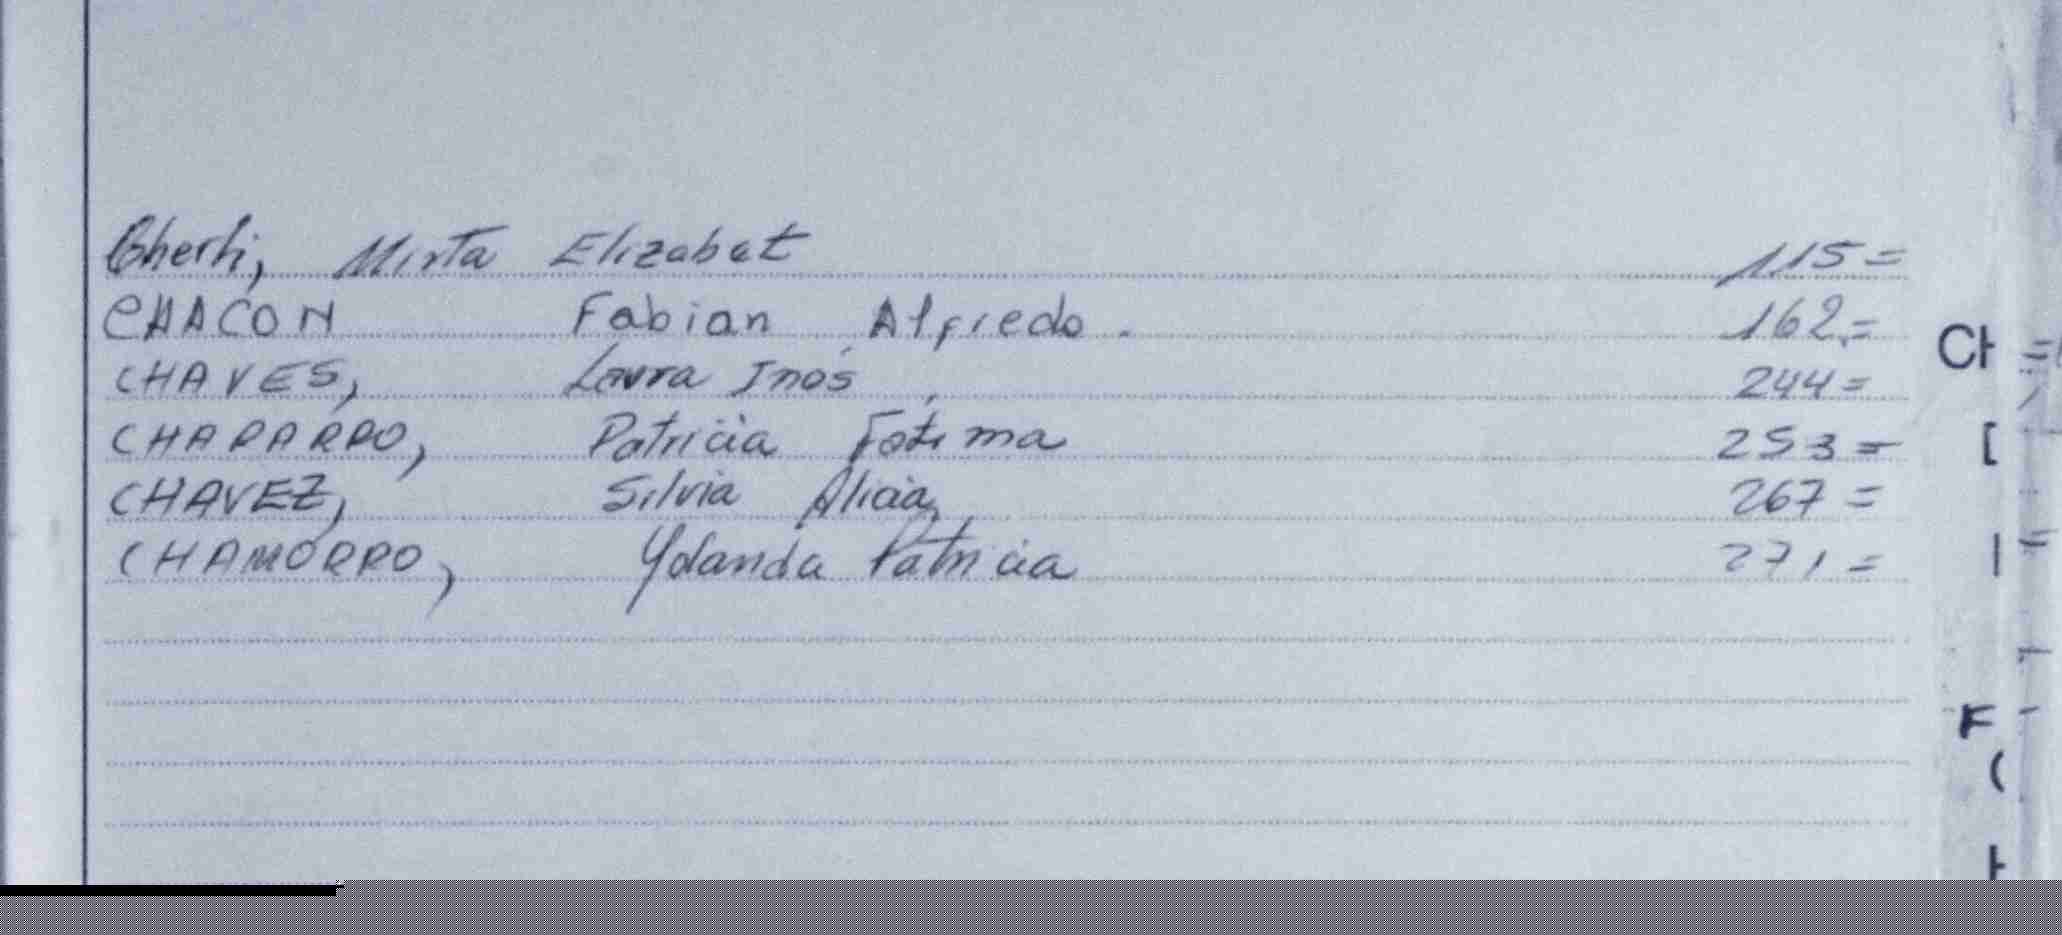 Gherli, Mirta Elizabet 115=
CHACON Fabian Alfredo. 162.=
CHAVES, Laura Inés 244=
CHAPARRO, Patricia Fatima 253=
CHAVEZ, Silvia Alicia 267=
CHAMORRO, Yolanda Patricia 271=
CH
F